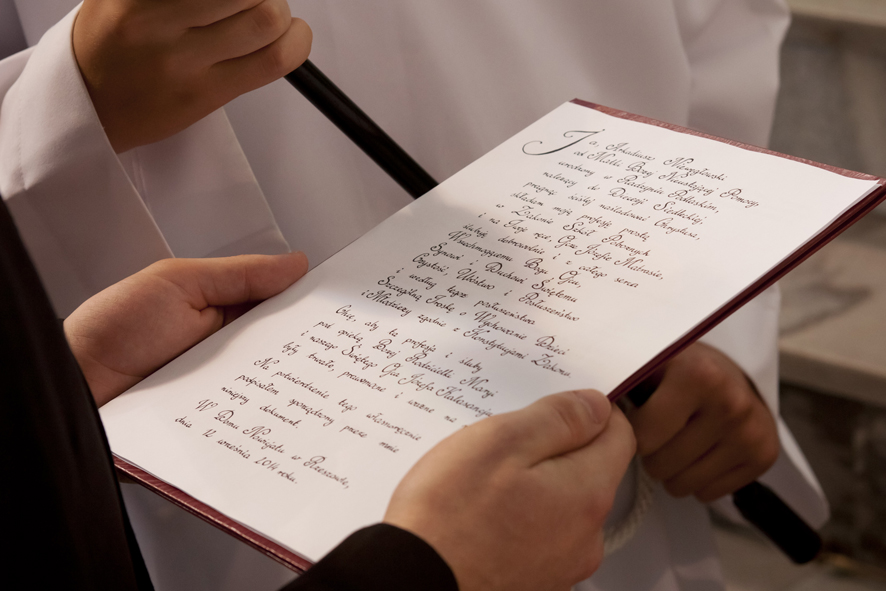 Ja, Arkadiusz Niewęgłowski
od Matki Bożej Nieustającej Pomocy,
urodzony w Radzyniu Podlaskim,
należący do Diecezji Siedleckiej,
pragnąc ściślej naśladować Chrystusa,
składam moją profesję prostą
w Zakonie Szkół Pobożnych
i na Twoje ręce, Ojcze Józefie Matrasie,
ślubuję dobrowolnie i z całego serca
Wszechmogącemu Bogu Ojcu,
Synowi i Duchowi Świętemu
Czystość, Ubóstwo i Posłuszeństwo
i według tegoż posłuszeństwa
Szczególną Troskę o Wychowanie Dzieci
i Młodzieży zgodnie z Konstytucjami Zakonu.
Chcę, aby ta profesja i śluby
pod opieką Bożej Rodzicielki Maryi
i naszego Świętego Ojca Józefa Kalasancjusza
były trwałe, prawomocne i ważne na
Na potwierdzenie tego własnoręcznie
podpisałem sporządzony przeze mnie
niniejszy dokument.
W Domu Nowicjatu w Rzeszowie,
dnia 12 września 2014 roku.